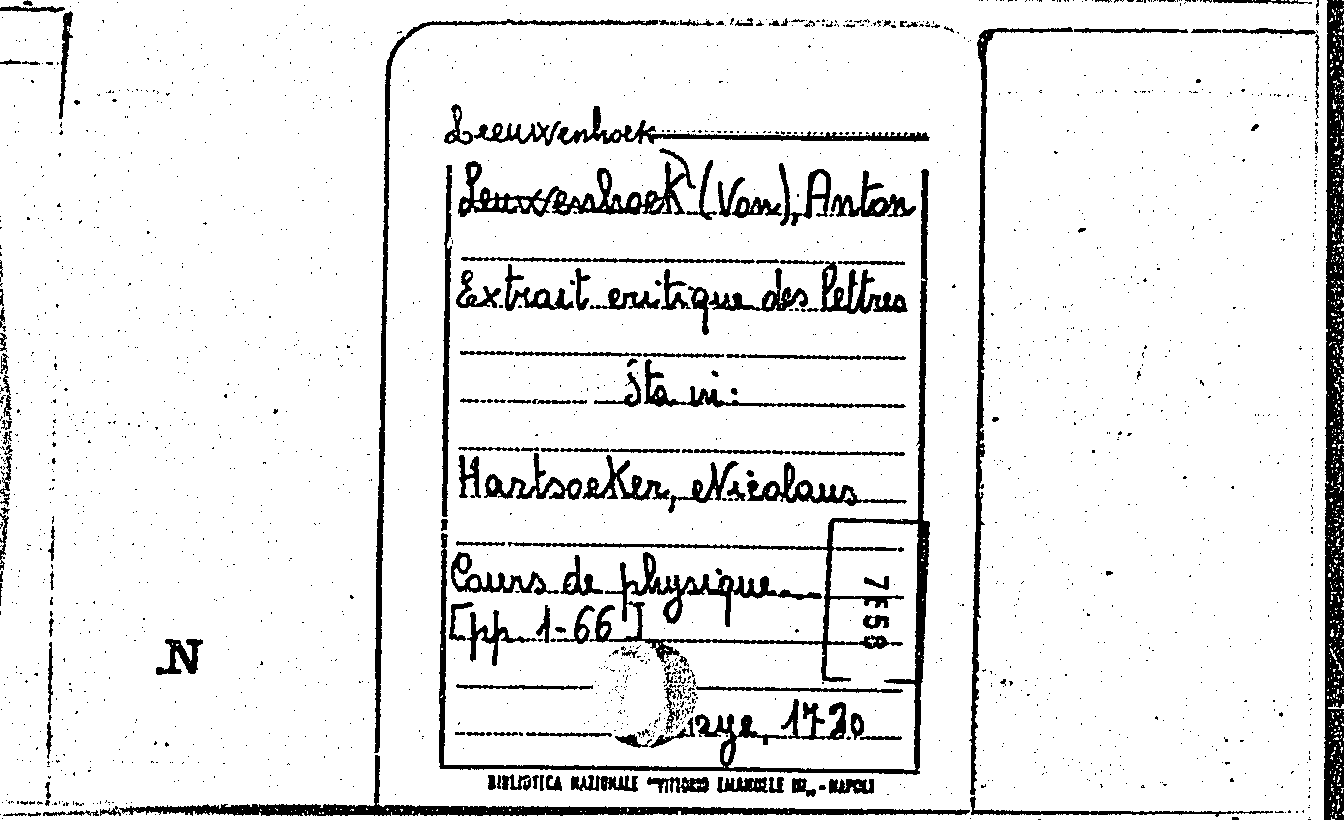 Leeuwenhoek
Leuwenhoek (Van), Anton
Extrait critique des lettres
Sta in:
Hartsoeker, Nicolaus
Cours de physique
[pp. 1-66]
aye, 1730
7E58
N
BIBLIOTECA NAZIONALE "VITTORIO EMANUELE III„ - NAPOLI